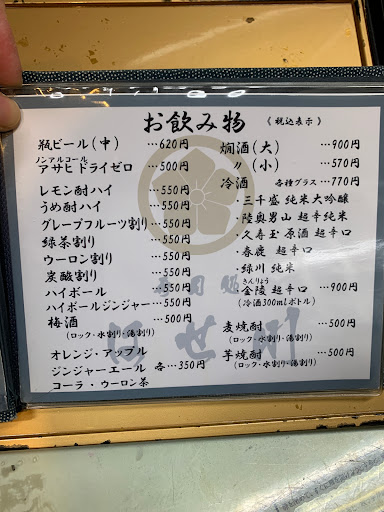 お飲み物 《税込表示》
瓶ビール(中) …620円
ノンアルコール
アサヒドライゼロ …500円
レモン酎ハイ …550円
うめ酎ハイ …550円
グレープフルーツ割り…550円
緑茶割り …550円
ウーロン割り …550円
炭酸割り …550円
ハイボール …550円
ハイボールジンジャー…550円
梅酒 …500円
(ロック・水割り・湯割り)
オレンジ・アップル
ジンジャーエール 各…350円
コーラ・ウーロン茶
燗酒(大) …900円
〃(小) …570円
冷酒 各種グラス…770円
・三千盛 純米大吟醸
・陸奥男山 超辛純米
・久寿玉 原酒 超辛口
・春鹿 超辛口
・緑川 純米
きんりょう
・金陵 超辛口 …900円
(冷酒300mlボトル)
麦焼酎 …500円
(ロック・水割り・湯割り)
芋焼酎 …500円
(ロック・水割り・湯割り)